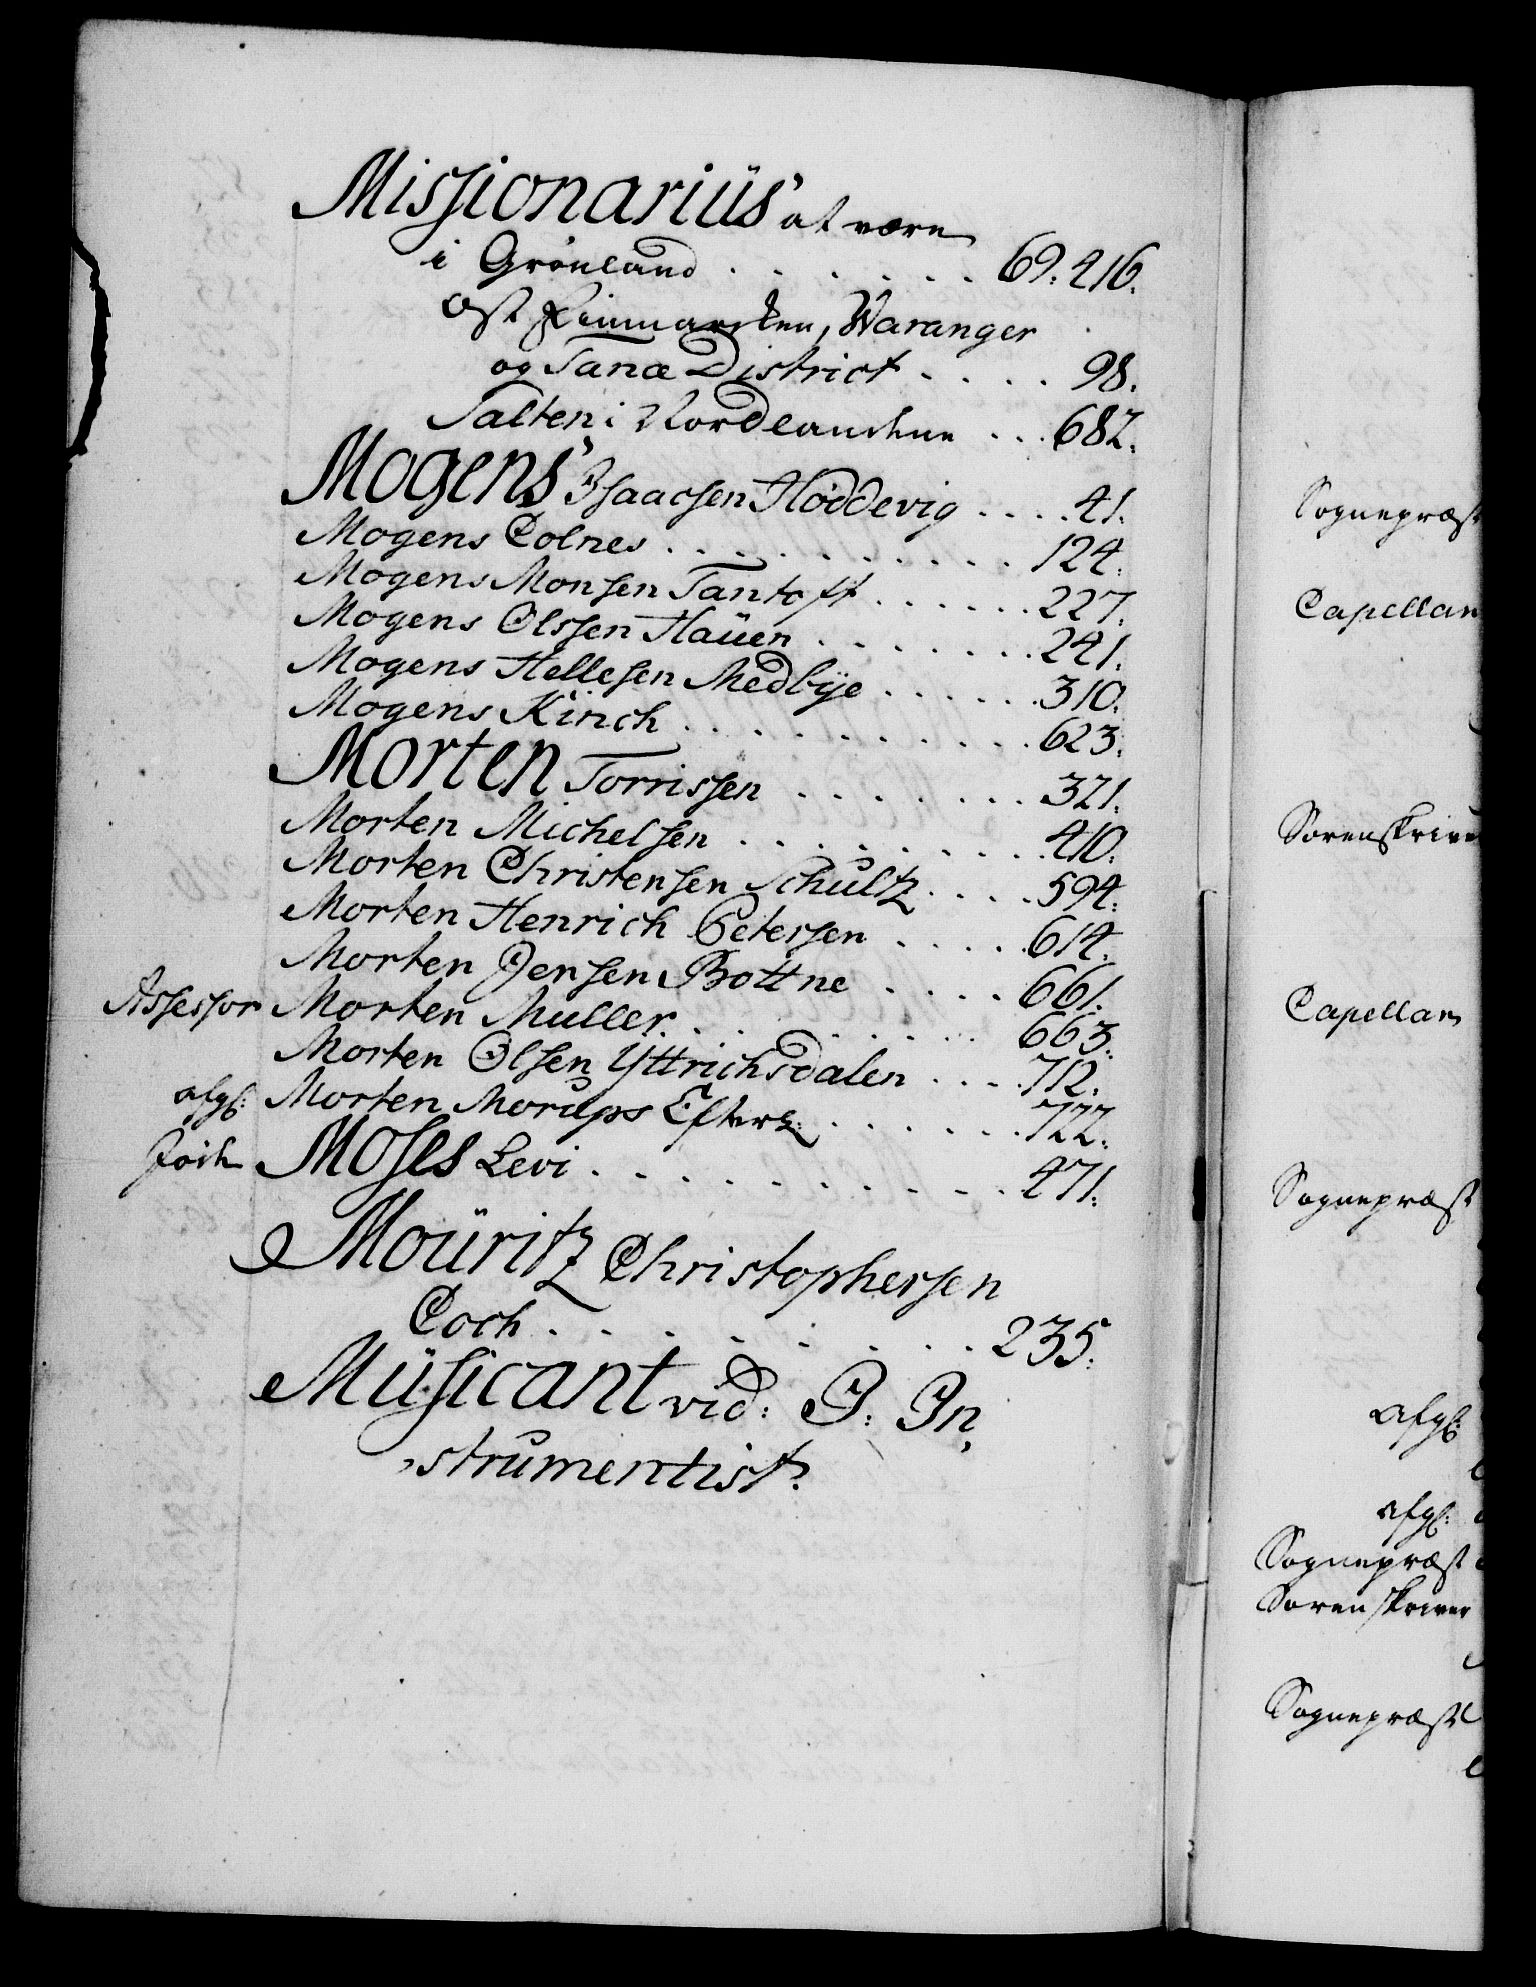 Missionariüs at være
i Grønland . . . . . . . 69. 416.
Ost Finmarcken, Waranger
og Tanæ District . . . . 98.
Salten i Nordlandene . . . 682.
Mogens Isaacsen Høddevig . . . . 41.
Mogens Colnes . . . . . . . . . . 124.
Mogens Monsen Tantoft . . . . . . 227.
Mogens Olssen Haüen . . . . . . . 241.
Mogens Hellesen Medbÿe . . . . . . 310.
Mogens Kinch . . . . . . . . . . 623.
Morten Torrissen . . . . . . . . 321.
Morten Michelsen . . . . . . . . 410.
Morten Christensen Schultz . . . . 594.
Morten Henrich Petersen . . . . 614.
Morten Jensen Bottne . . . . 661.
Assessor Morten Muller . . . . . . . 663.
Morten Olsen Yttrichsdalen . . . . 712.
afg: Morten Morups Efterl: . . . . . . 722.
Jøde Moses Levi . . . . . . . . . 471.
Moüritz Christophersen
Coch . . . . . . . . 235.
Müsicant vid: P: In,
,strumentist.
Sognepræst
Capellan
Sorenskriver
Capellan
Sognepræst
afg:
afg:
Sognepræst
Sorenskriver
Sognepræst